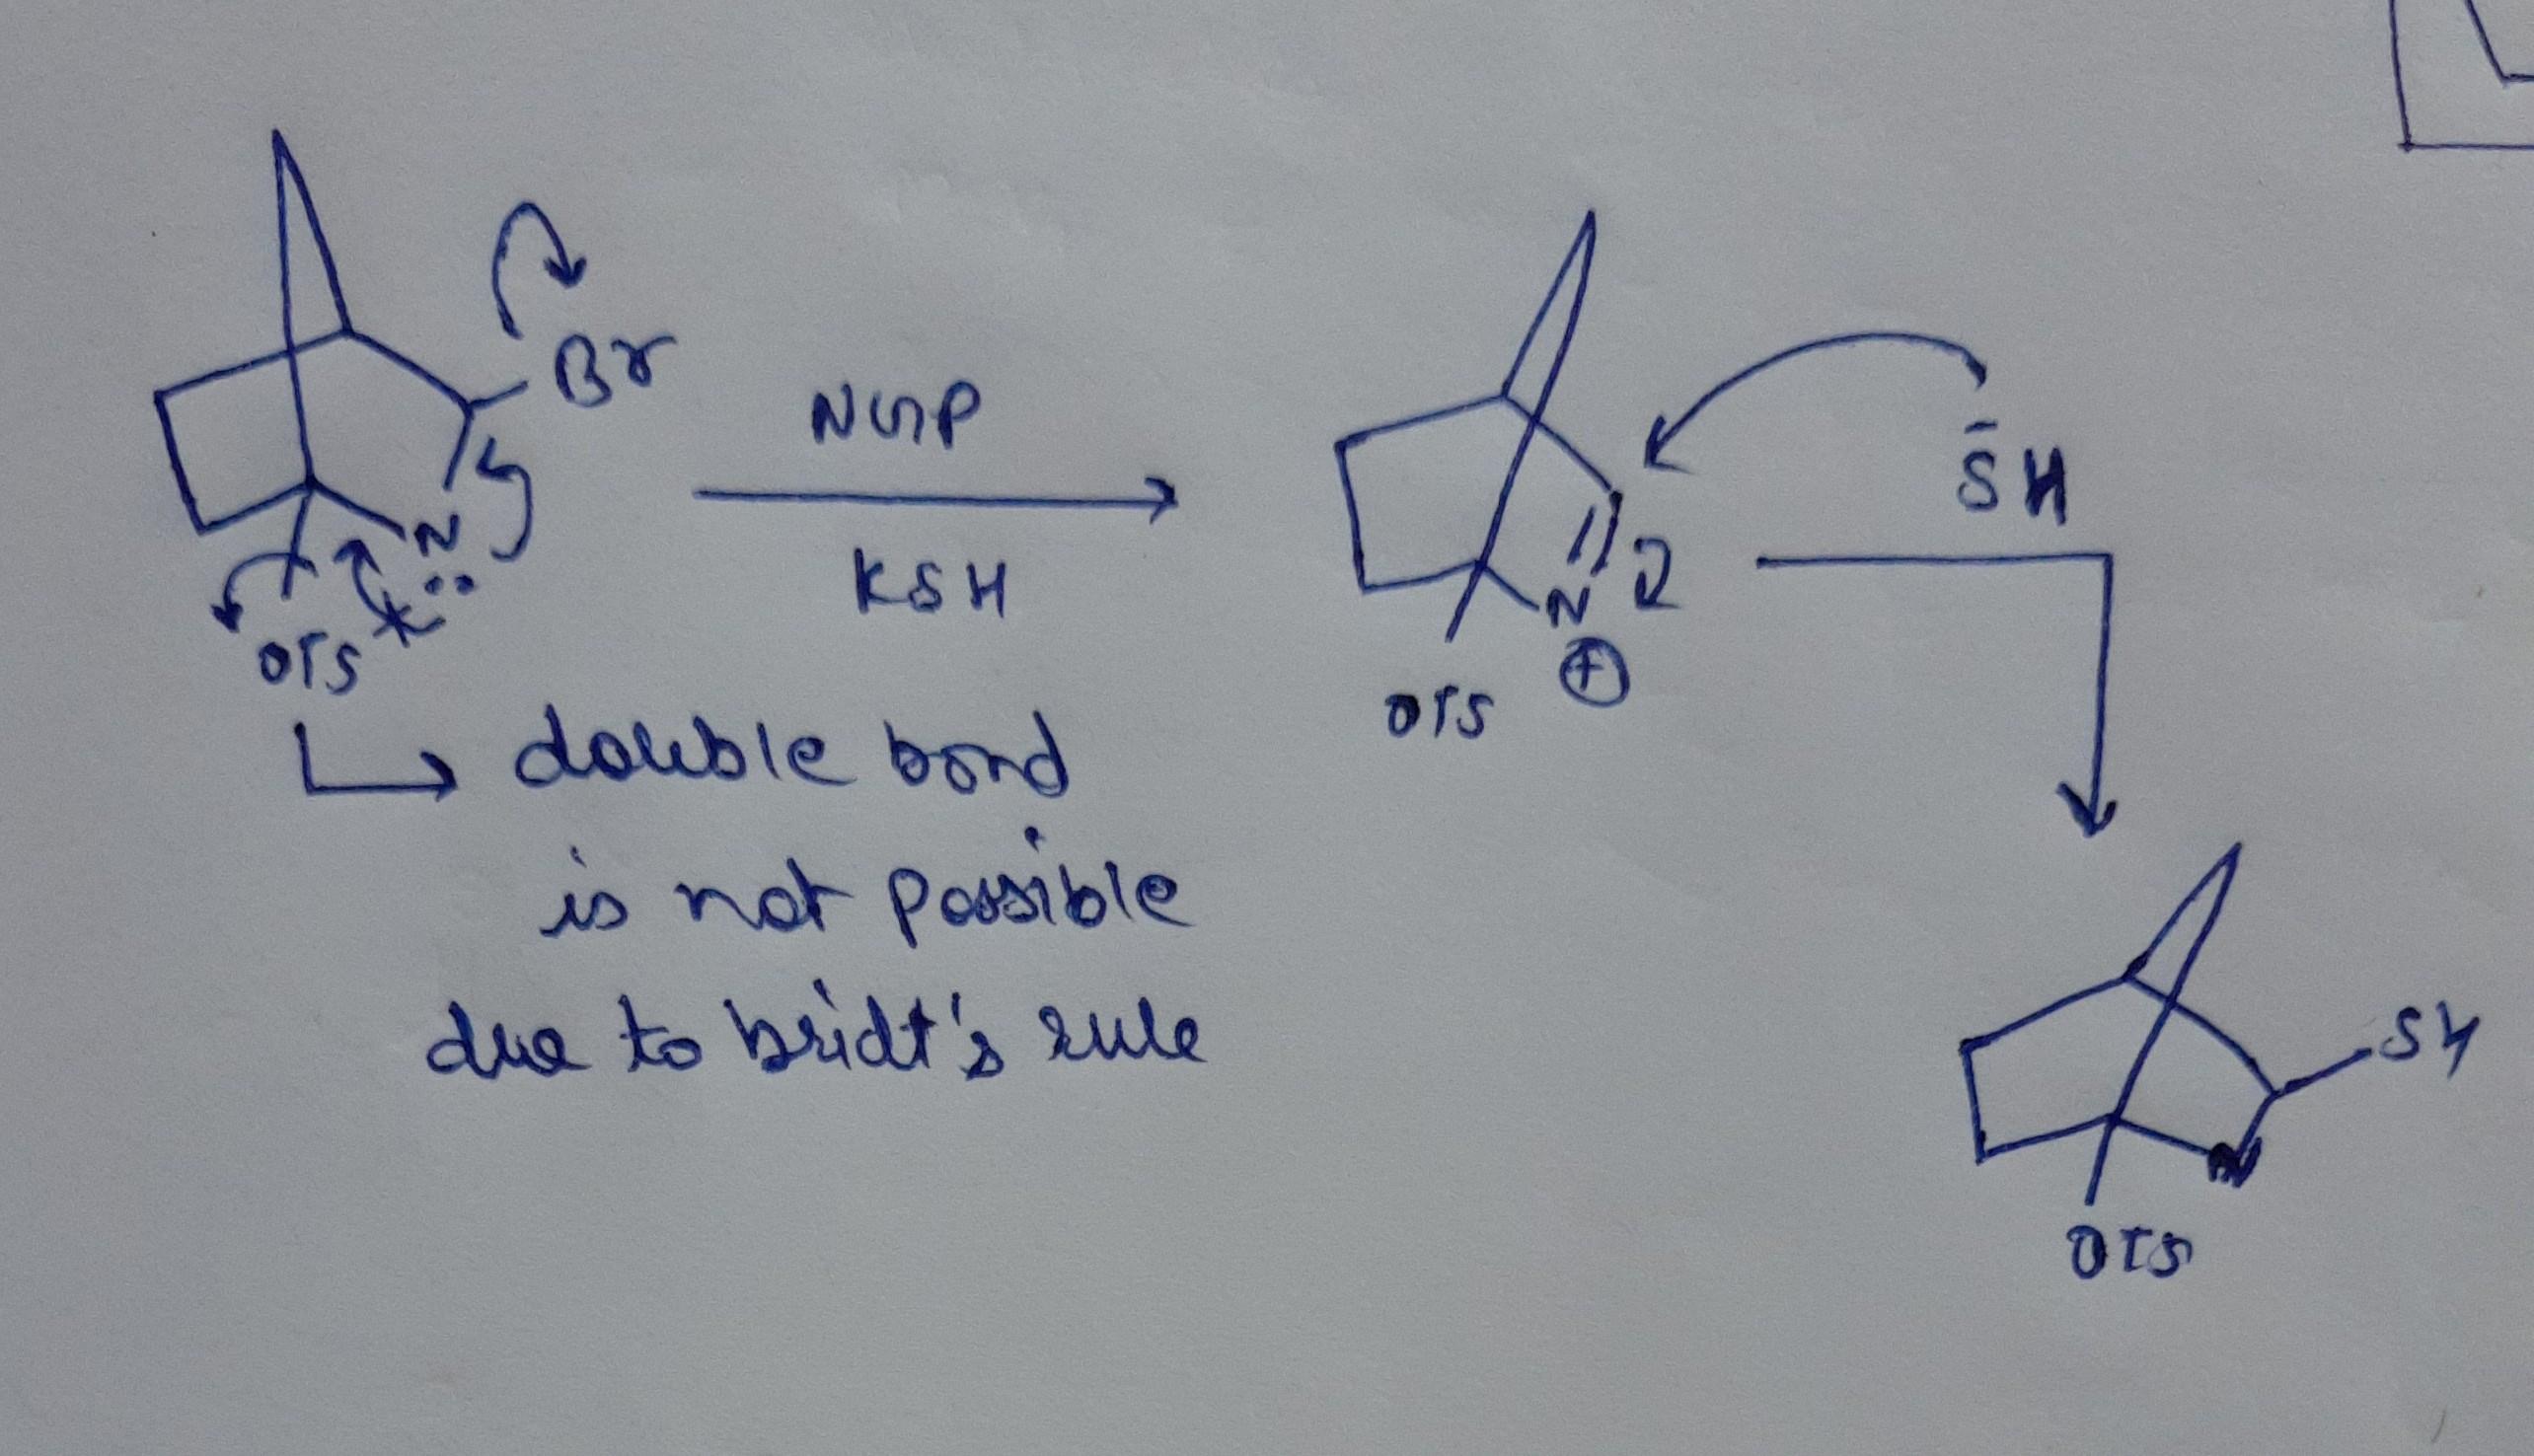 Br
N
..
OTS
NGP
KSH
N
⊕
OTS
S̄H
double bond
is not possible
due to bridt's rule
SH
N
OTS